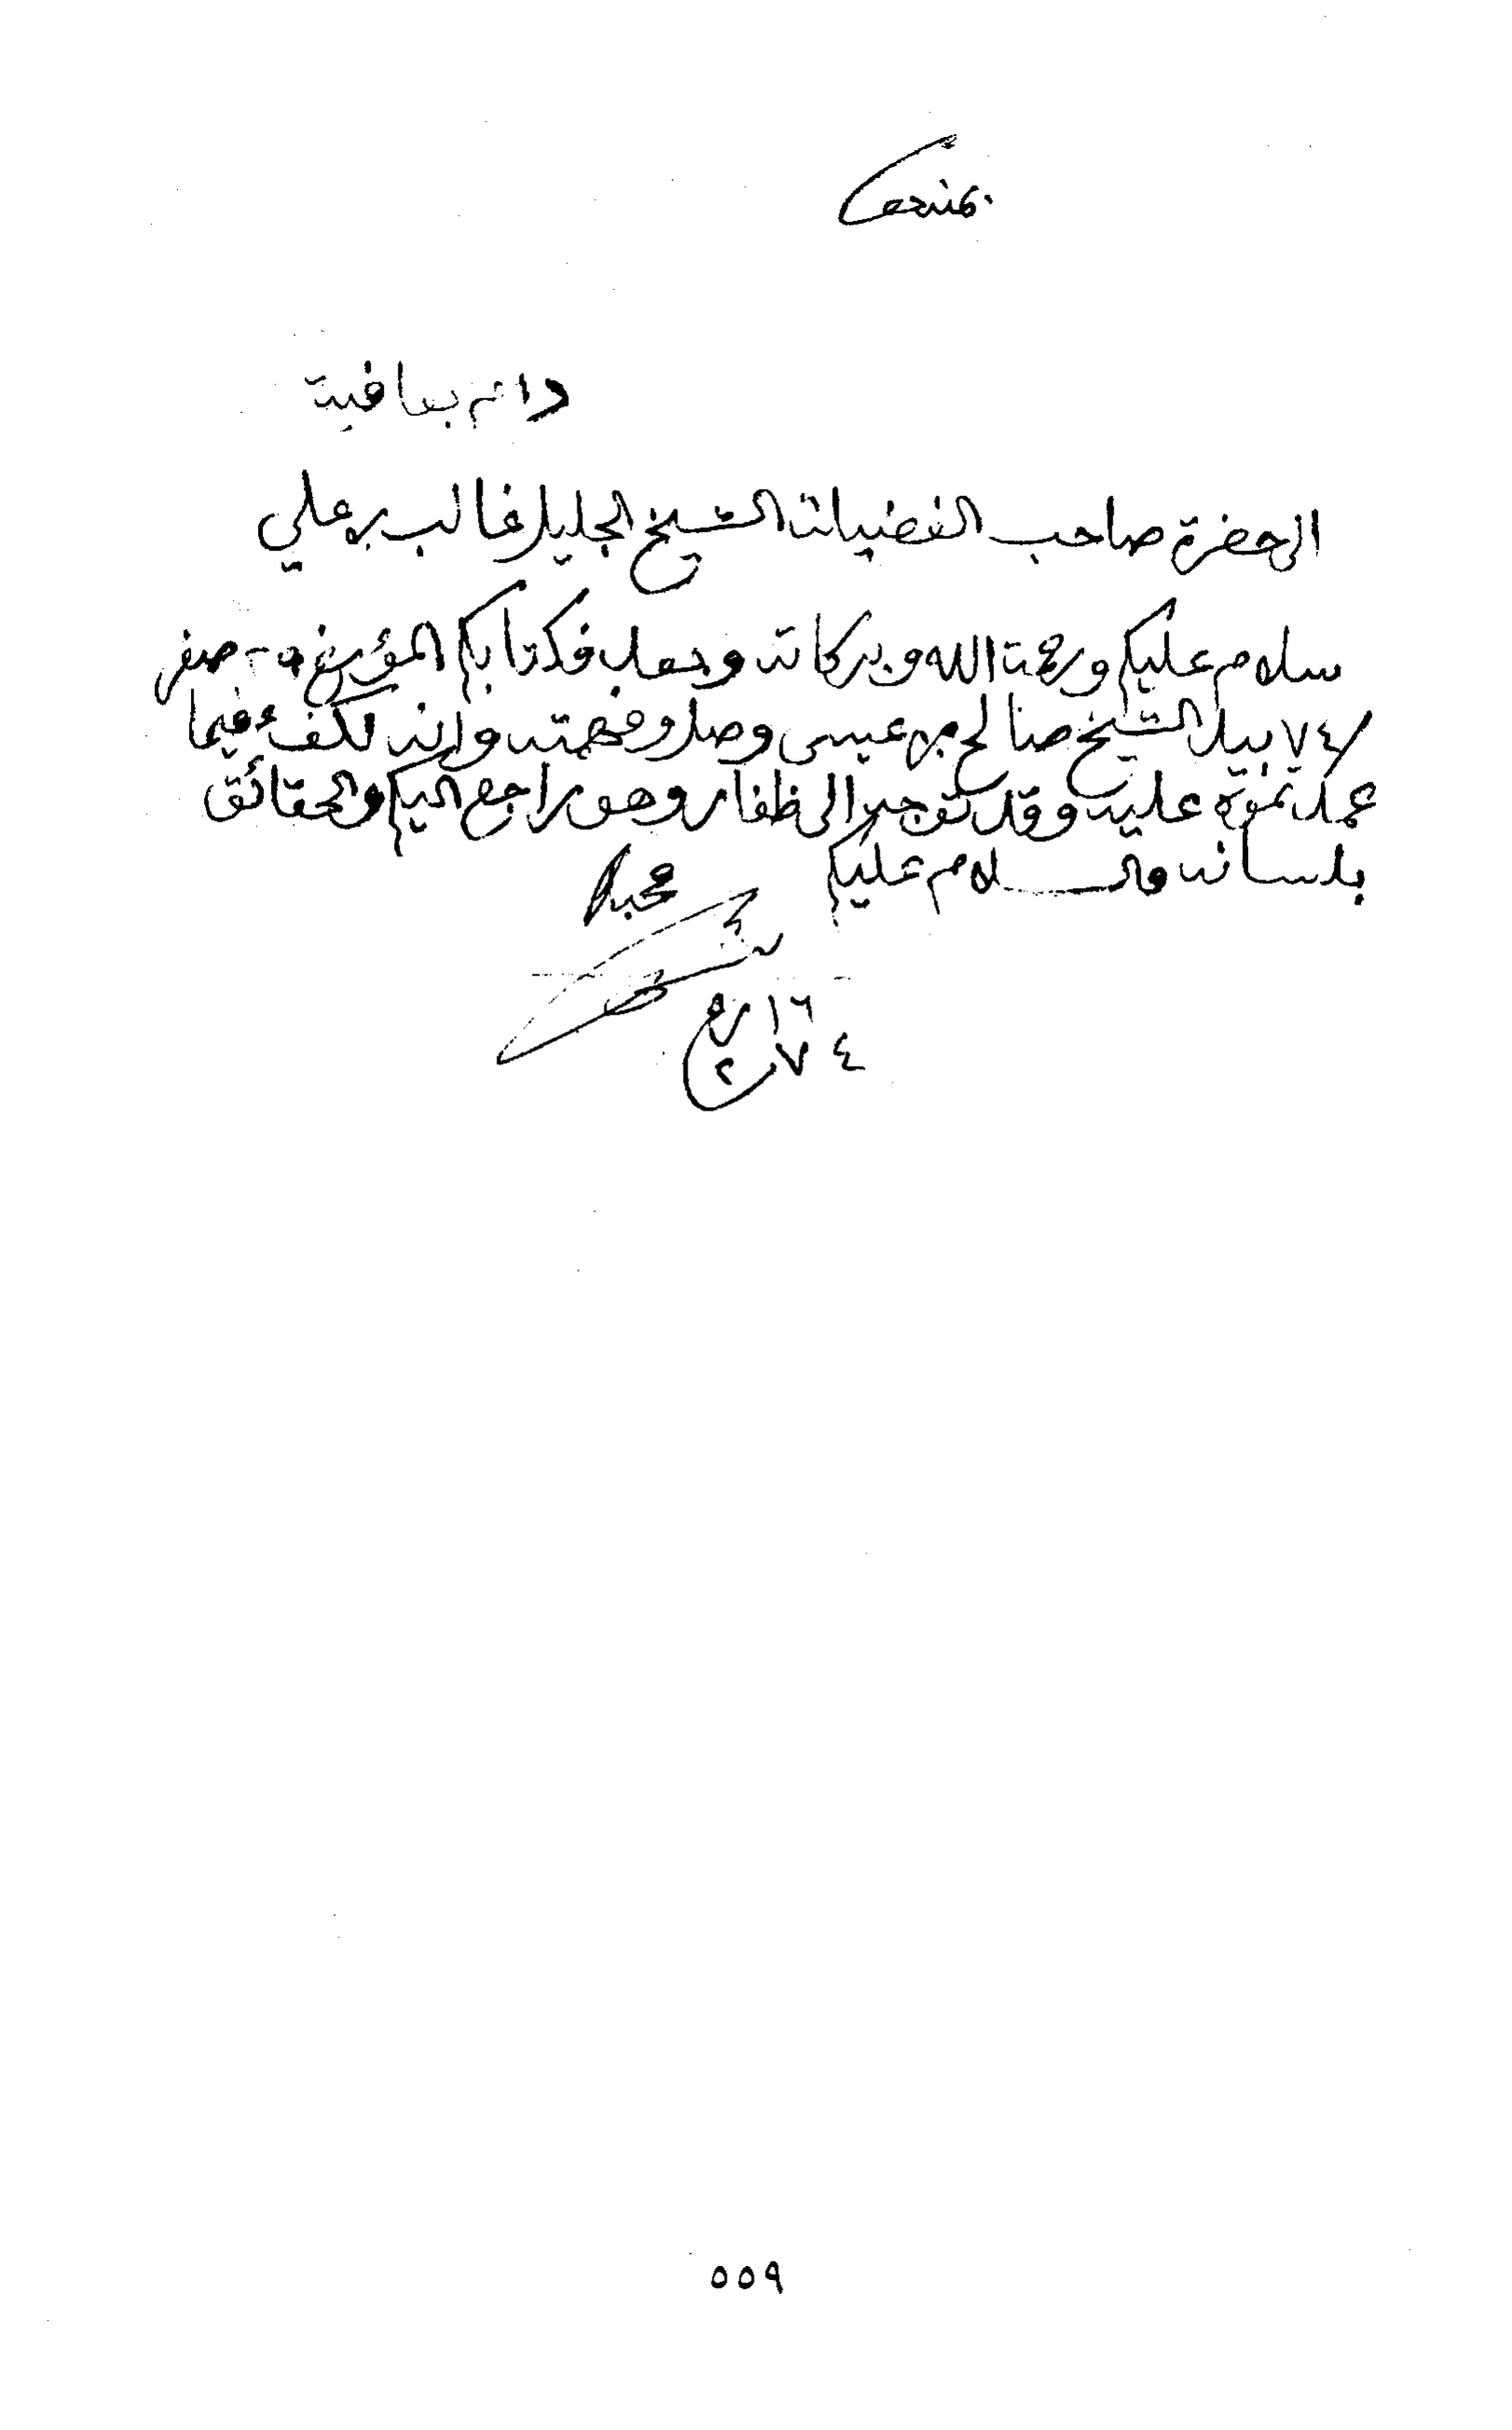 دائم بعافية
الى حضرة صاحب الفضيلة الشيخ الجليل غالب بن علي
سلام عليكم ورحمة الله وبركاته وبعد فكتابكم المؤرخ ٩ - صفر
/٧٤ بيد الشيخ صالح بن عيسى وصل وفهمته وانه لكفء فيما
عمدتموه عليه وقد توجه الى ظفار وهو راجع اليكم والحقائق
بلسانه والسلام عليكم
محبك
١٦ ربيع ٢
٧٤
٥٥٩